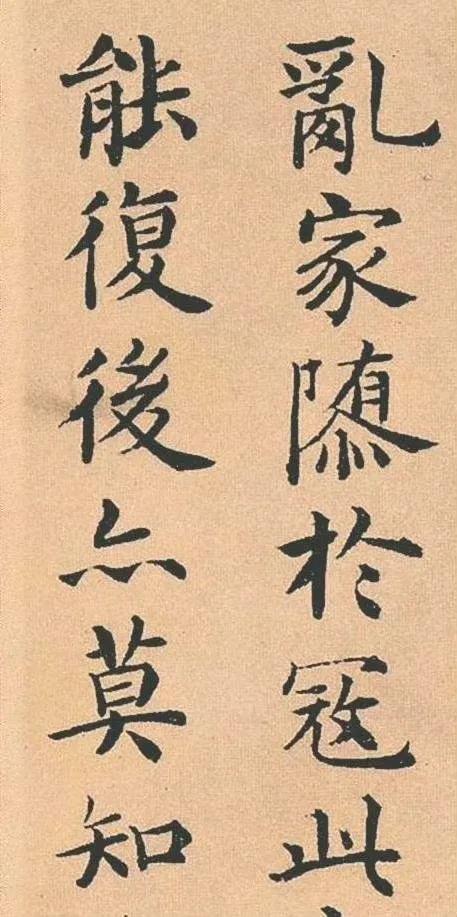 亂家隳於寇此
能復後亦莫知